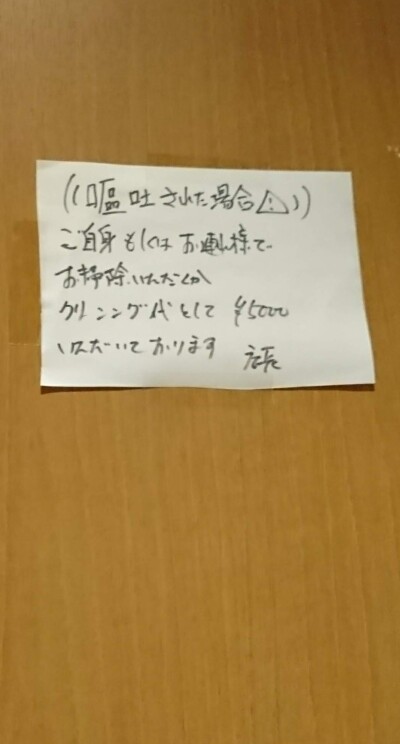 ((嘔吐された場合⚠))
ご自身もしくはお連れ様で
お掃除いただくか
クリーニング代として ¥5000
いただいております 店長